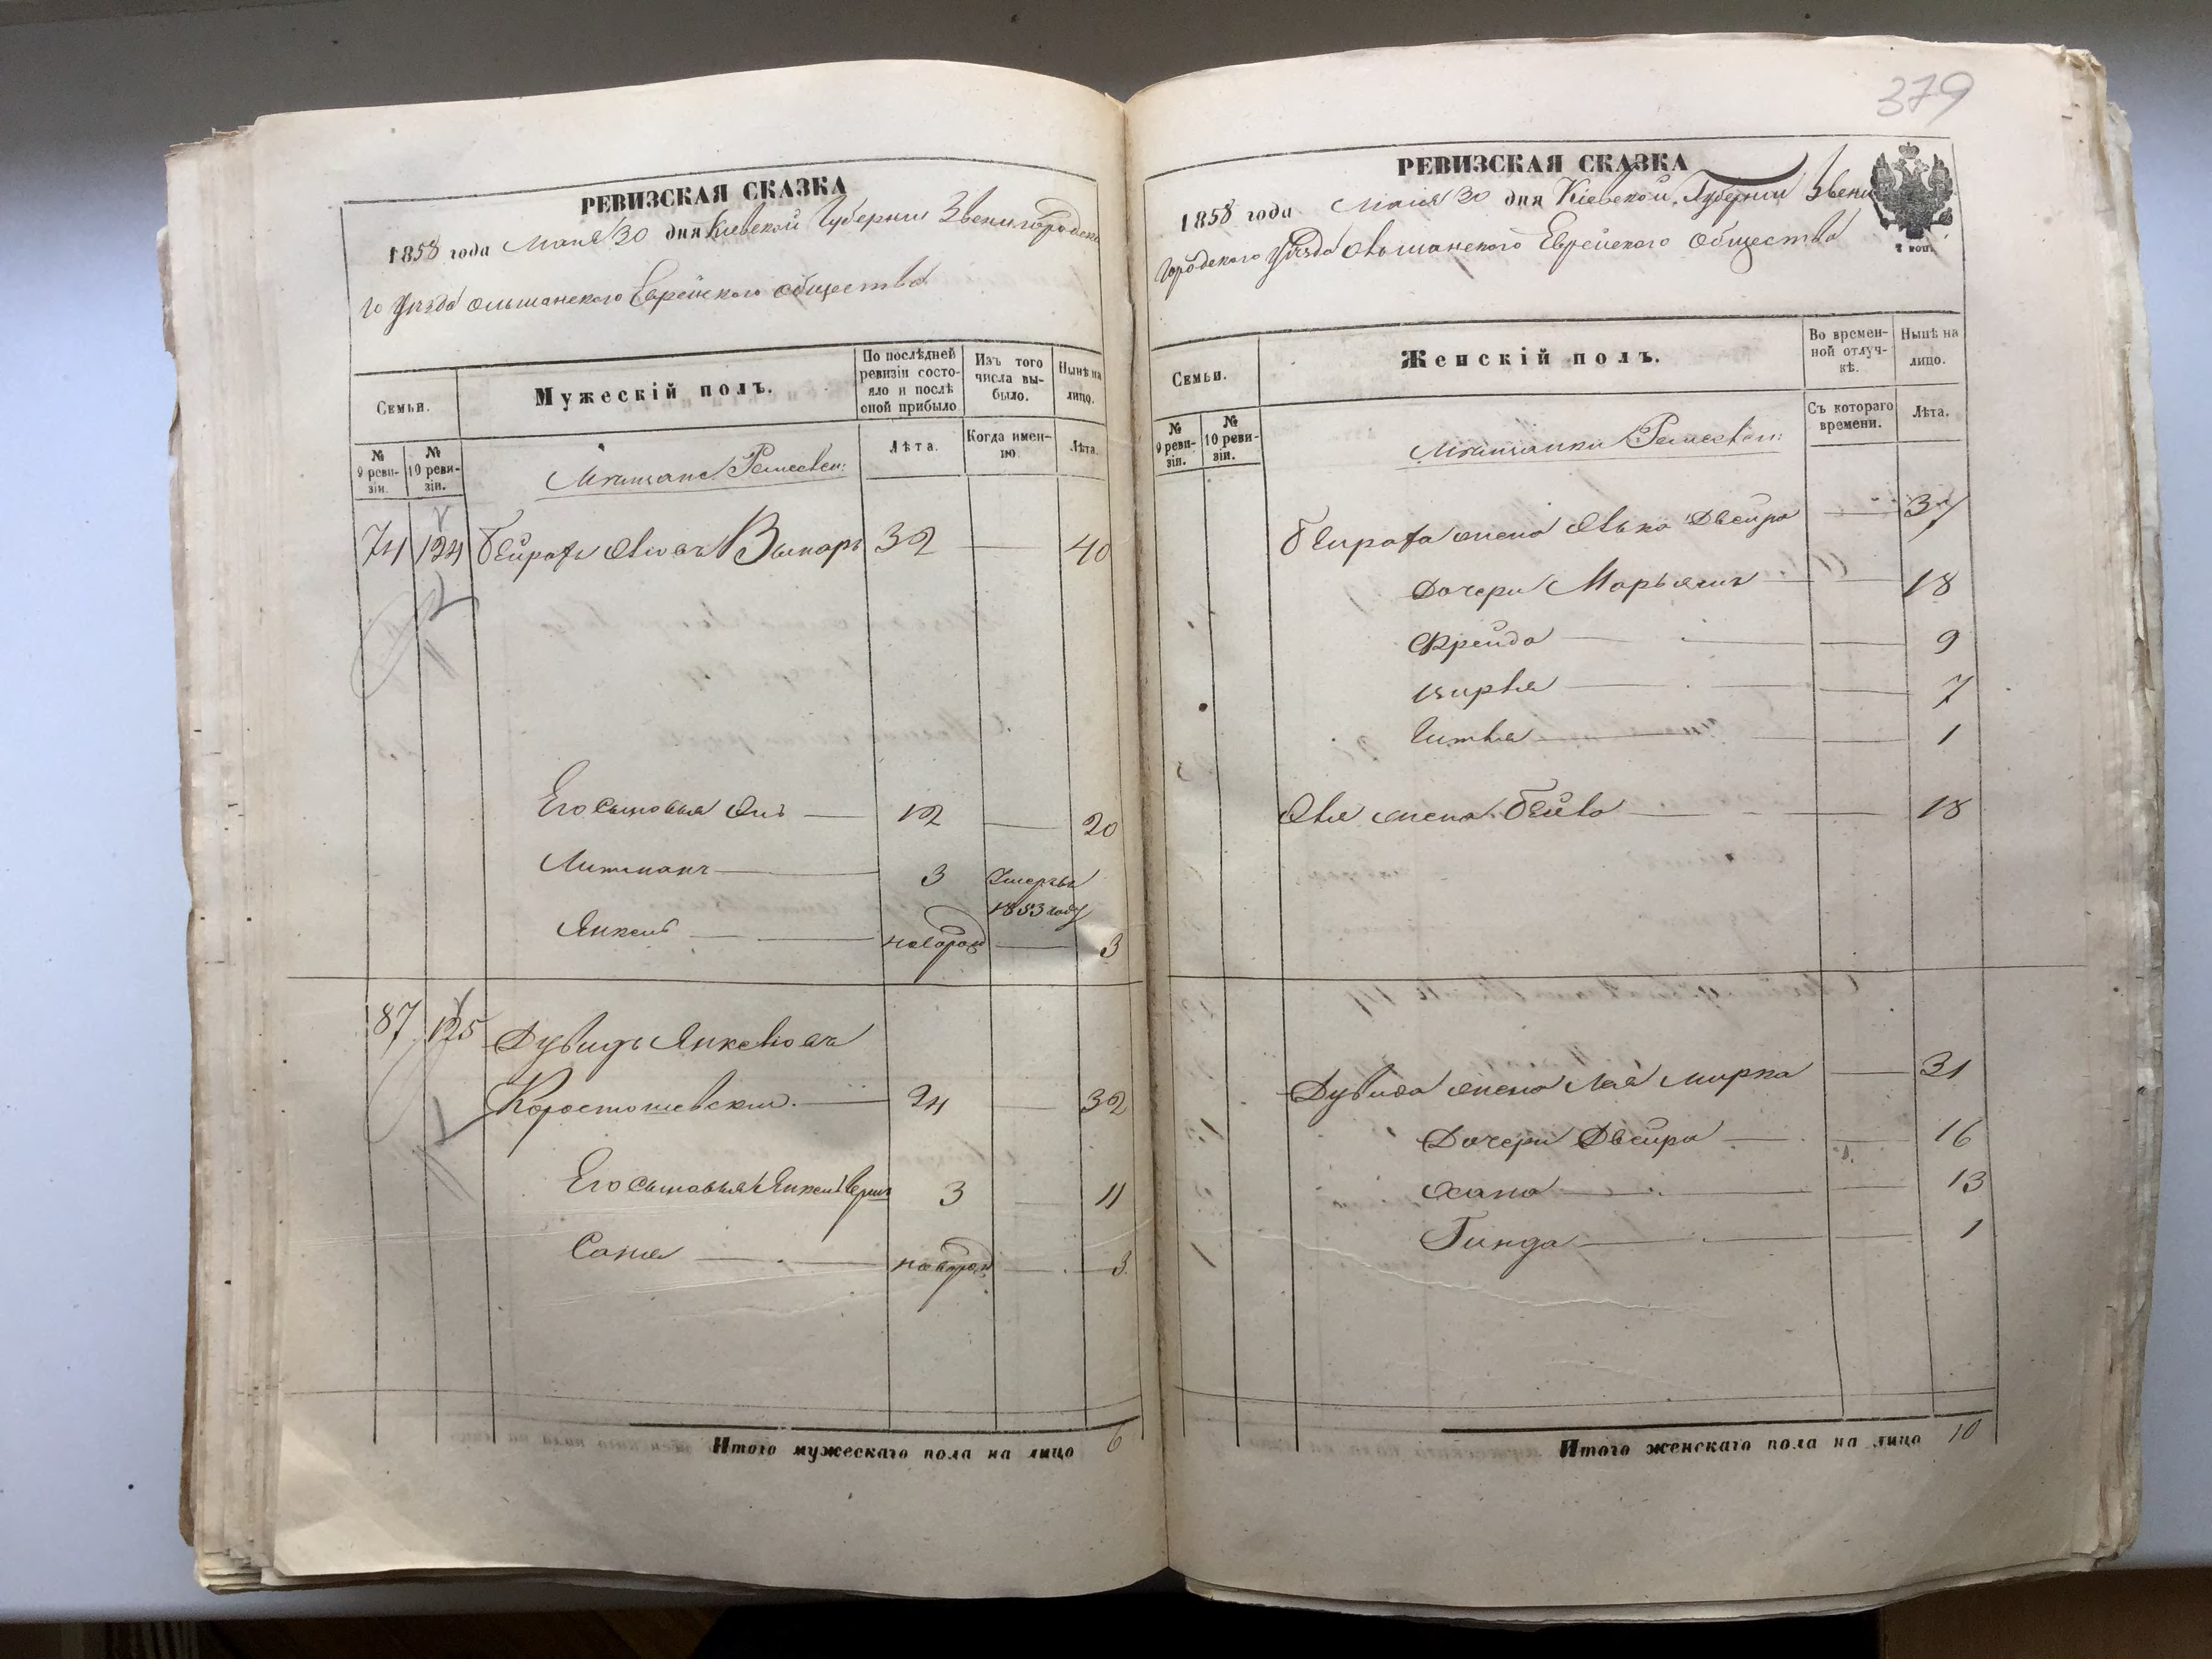 РЕВИЗСКАЯ СКАЗКА
1858 года Маія 30 дня Кіевской Губерніи Звенигородска
го Уѣзда Ольшанскаго Еврейскаго Общества
Семьи.
Мужескій полъ.
По послѣдней ревизіи состояло и послѣ оной прибыло
Изъ того числа выбыло.
Нынѣ на лицо.
№ 9 ревизіи.
№ 10 ревизіи.
Лѣта.
Когда именно.
Лѣта.
Мѣщане
74 124 32 — 40
Его сыновья 12 — 20
3 Умеръ въ 1853 году
Янкель — новорож — 3
87 125 Дувидъ Янкелевъ
Коростошевскій — 24 — 32
Его сыновья Янкель 3 — 11
новорож — 3
Итого мужескаго пола на лицо 6
379
РЕВИЗСКАЯ СКАЗКА
1858 года Маія 30 дня Кіевской Губерніи Звени
городскаго Уѣзда Ольшанскаго Еврейскаго Общества
Семьи.
Женскій полъ.
Во временной отлучкѣ.
Нынѣ на лицо.
№ 9 ревизіи.
№ 10 ревизіи.
Съ котораго времени.
Лѣта.
Мѣщанки
жена Двейра — 37
Дочери Марьямъ — 18
Фрейда — 9
7
Гитля — 1
жена Бейла — 18
Дувида жена Лая Мирка — 31
Дочери Двейра — 16
Хана — 13
Гинда — 1
Итого женскаго пола на лицо 10